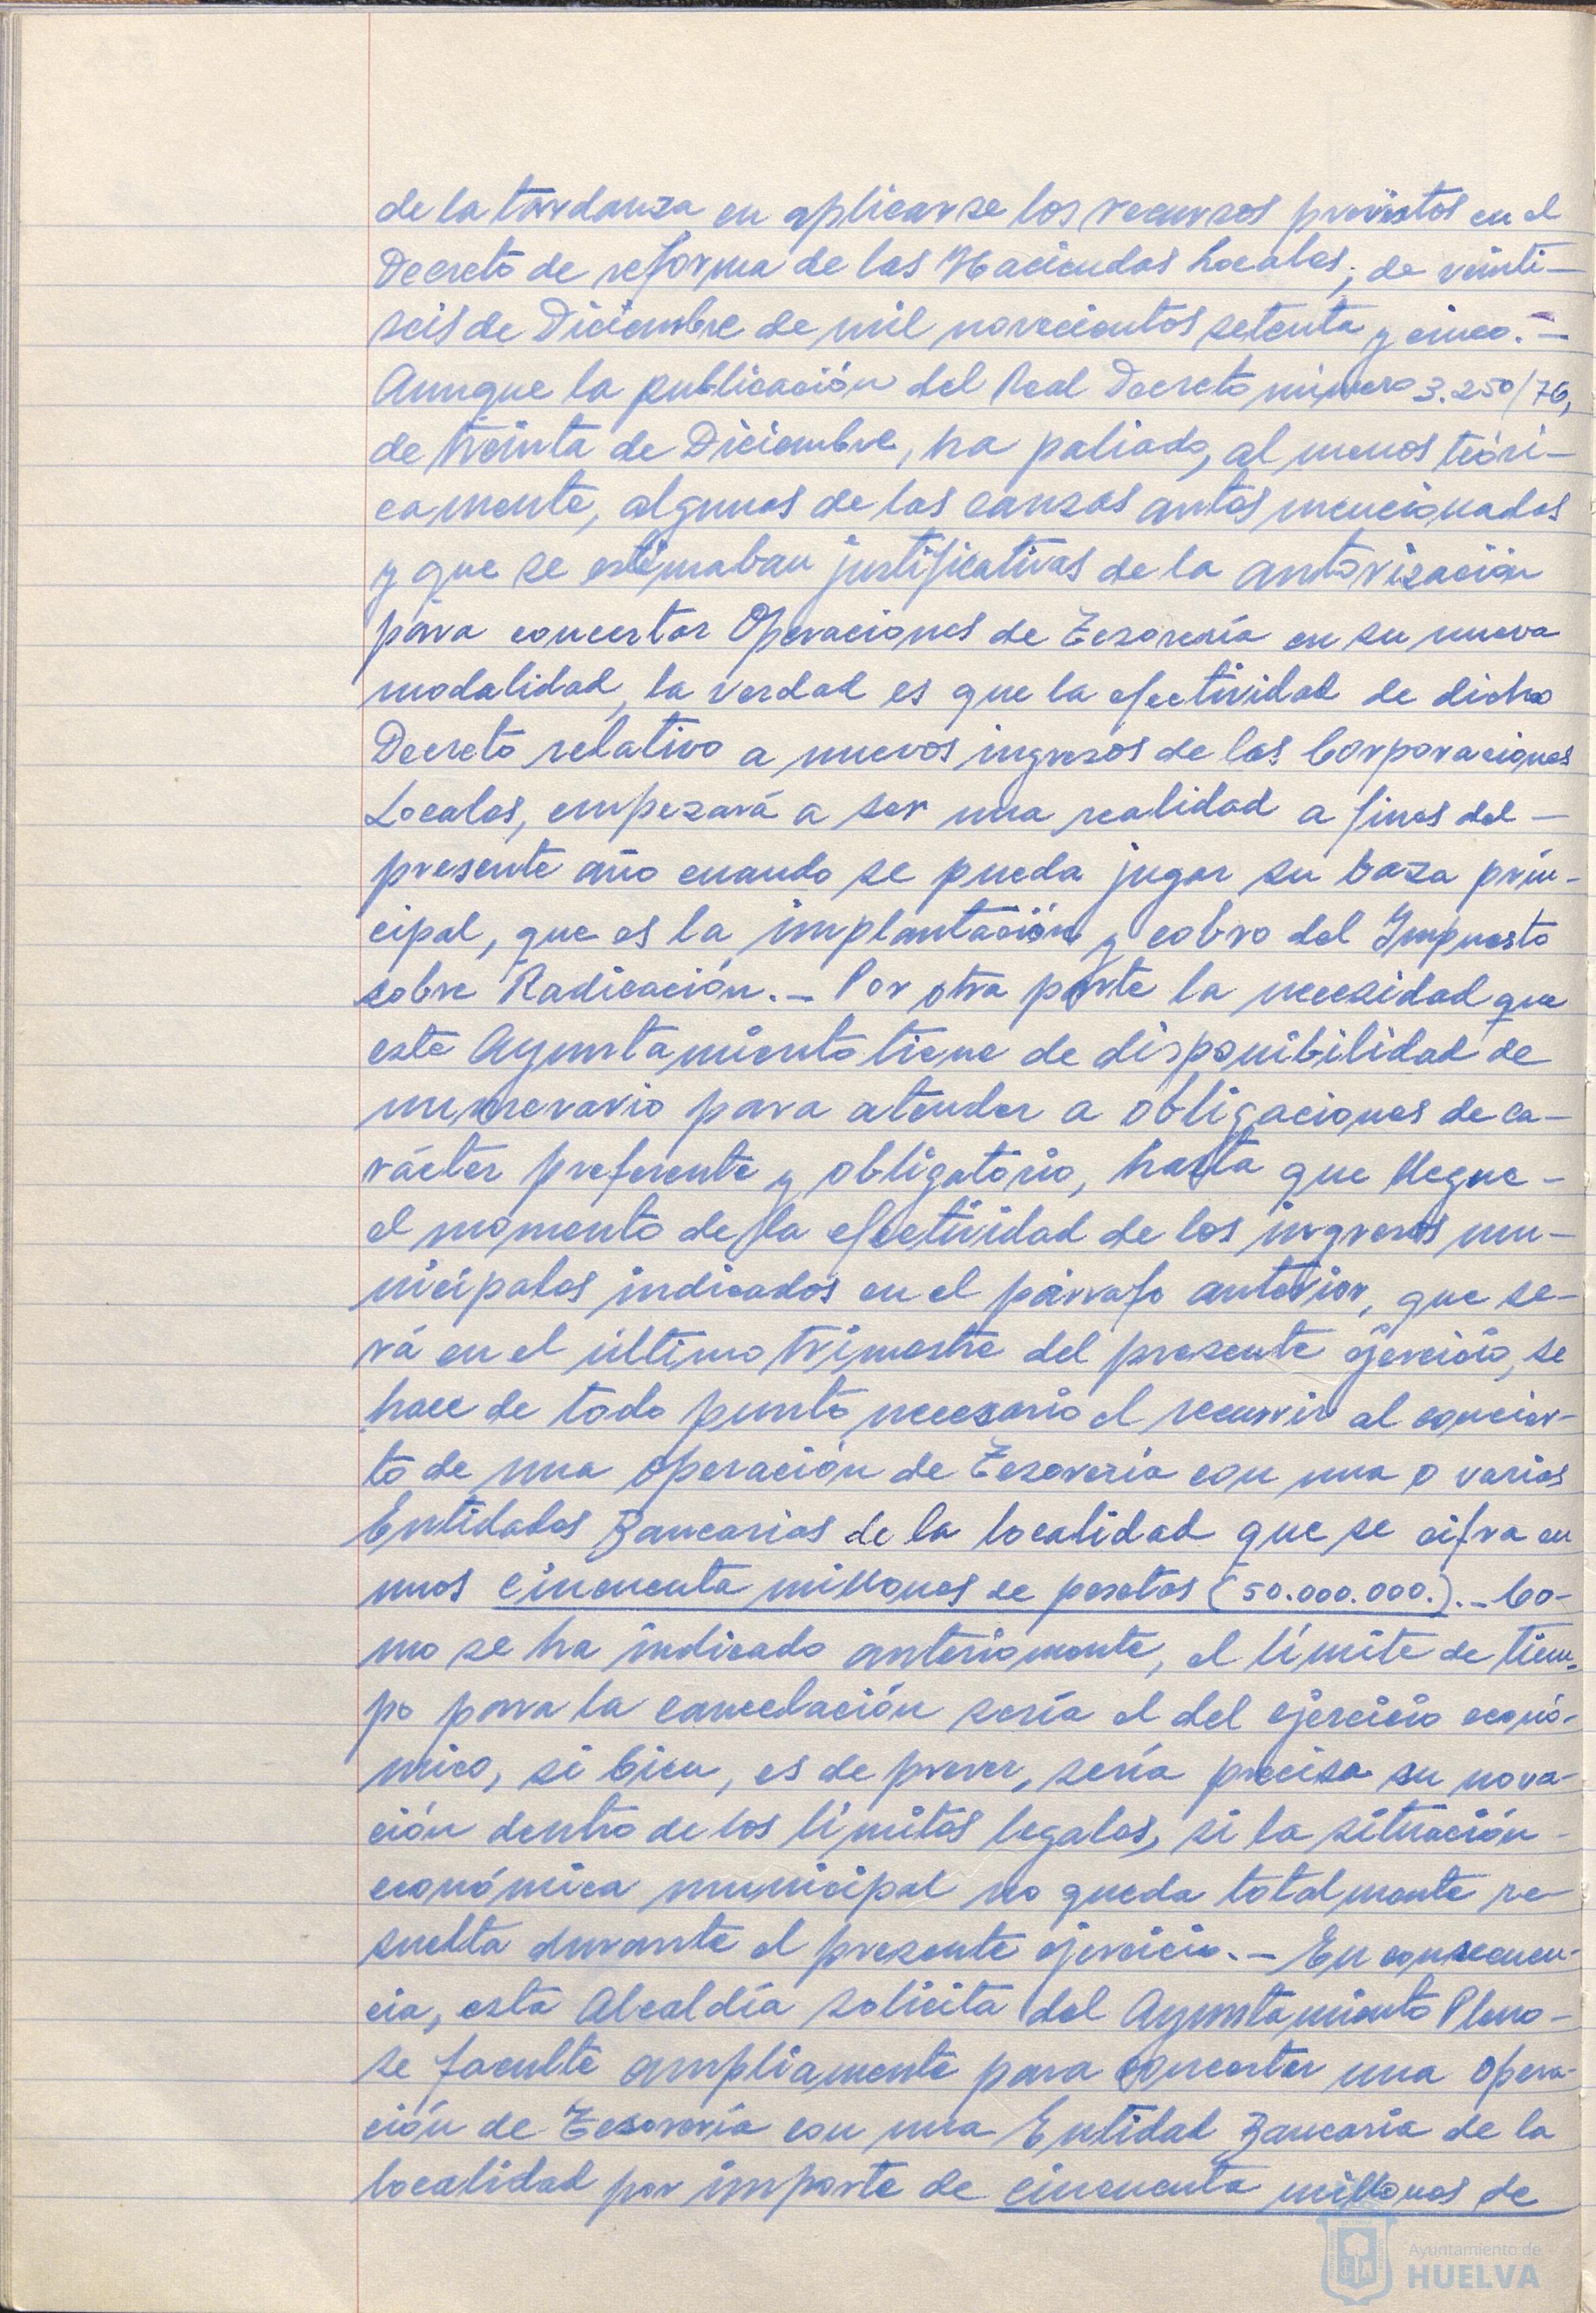 de la tardanza en aplicarse los recursos previstos en el
Decreto de reforma de las Haciendas Locales, de veinti-
seis de Diciembre de mil novecientos setenta y cinco.-
Aunque la publicación del Real Decreto número 3.250/76,
de treinta de Diciembre, ha paliado, al menos teóri-
camente, algunas de las causas antes mencionadas
y que se estimaban justificativas de la autorización
para concertar Operaciones de Tesorería en su nueva
modalidad, la verdad es que la efectividad de dicho
Decreto relativo a nuevos ingresos de las Corporaciones
Locales, empezará a ser una realidad a fines del -
presente año cuando se pueda jugar su baza prin-
cipal, que es la implantación y cobro del Impuesto
sobre Radicación.- Por otra parte la necesidad que
este Ayuntamiento tiene de disponibilidad de
numerario para atender a obligaciones de ca-
rácter preferente y obligatorio, hasta que llegue -
el momento de la efectividad de los ingresos mu-
nicipales indicados en el párrafo anterior, que se-
rá en el último trimestre del presente ejercicio, se
hace de todo punto necesario el recurrir al concier-
to de una operación de Tesorería con una o varias
Entidades Bancarias de la localidad que se cifra en
unos cincuenta millones de pesetas (50.000.000.).- Co-
mo se ha indicado anteriormente, el límite de tiem-
po para la cancelación sería el del ejercicio econó-
mico, si bien, es de prever, sería precisa su nova-
ción dentro de los límites legales, si la situación -
económica municipal no queda totalmente re-
suelta durante el presente ejercicio.- En consecuen-
cia, esta Alcaldía solicita del Ayuntamiento Pleno -
se faculte ampliamente para concertar una opera-
ción de Tesorería con una Entidad Bancaria de la
localidad por importe de cincuenta millones de
Ayuntamiento de
HUELVA